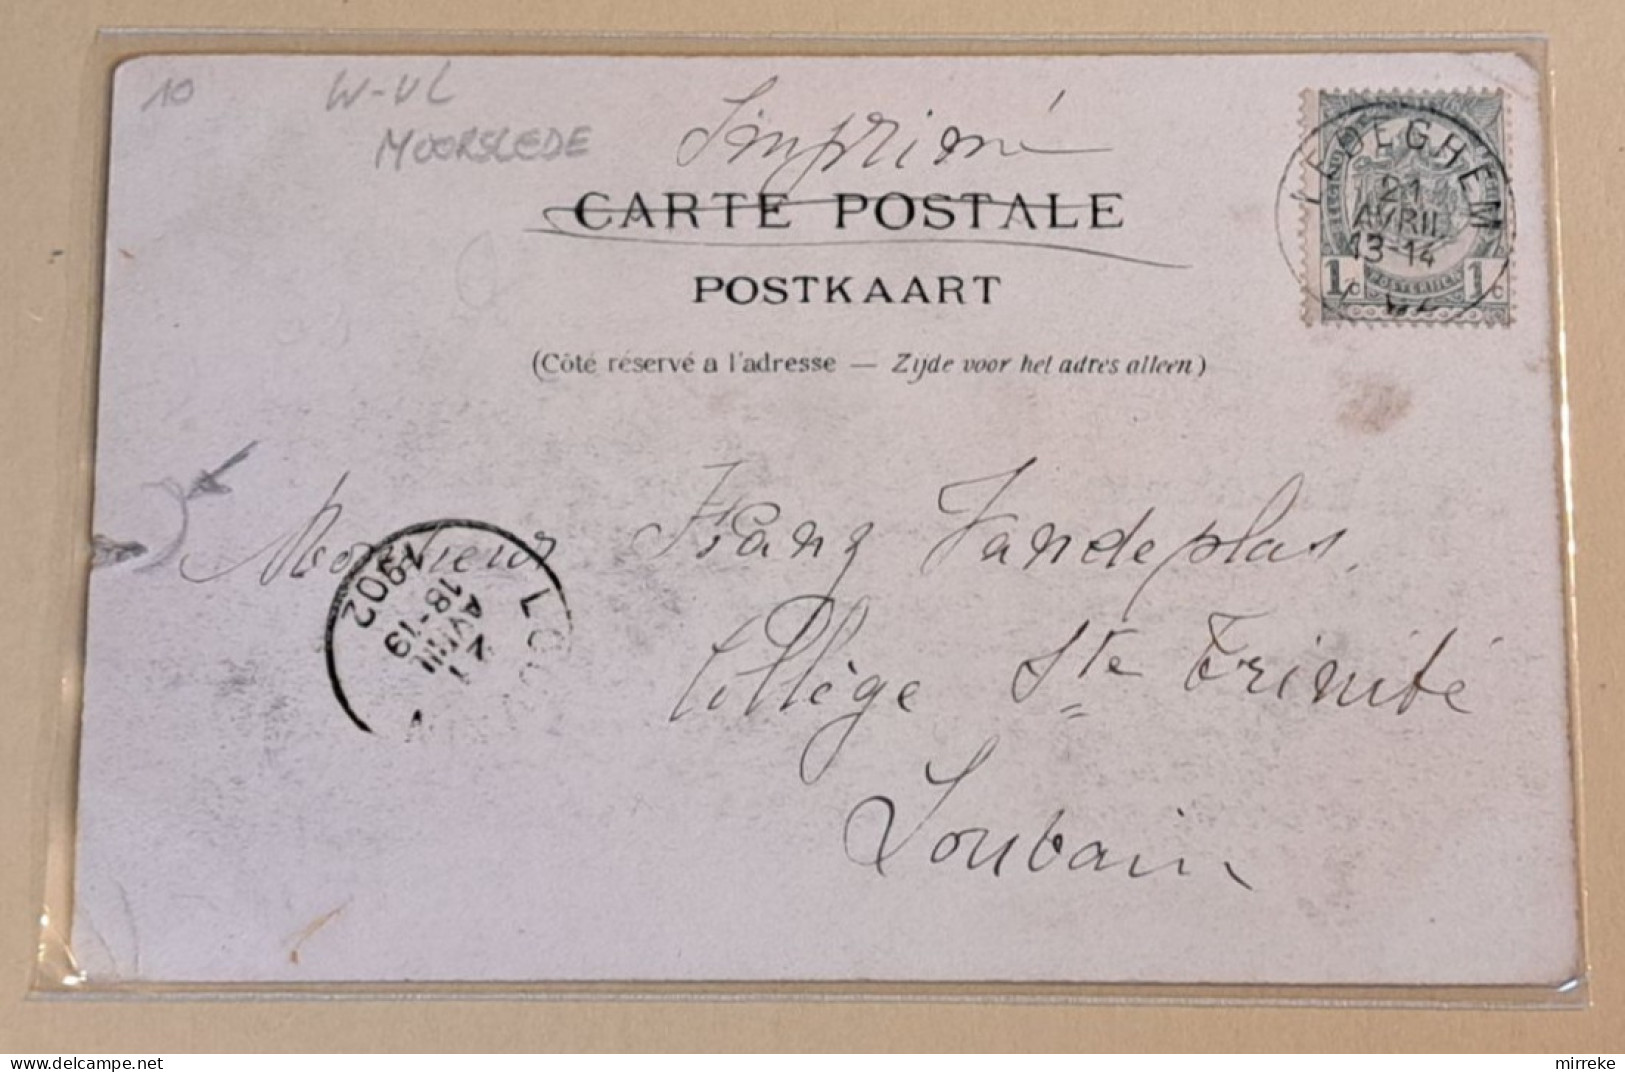 10
W-VL
MOORSLEDE
Imprimé
CARTE POSTALE
POSTKAART
(Côté réservé a l'adresse — Zijde voor het adres alleen)
LEDEGHEM
21
AVRIL
13-14
1c 1c
Monsieur Franz Vandeplas.
Collège Ste Trinité
Louvain
1902
18-19
AVRIL
mirreke